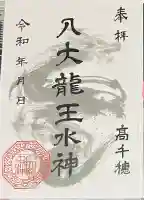 奉拝
八大龍王水神
高千穂
令和 年 月 日